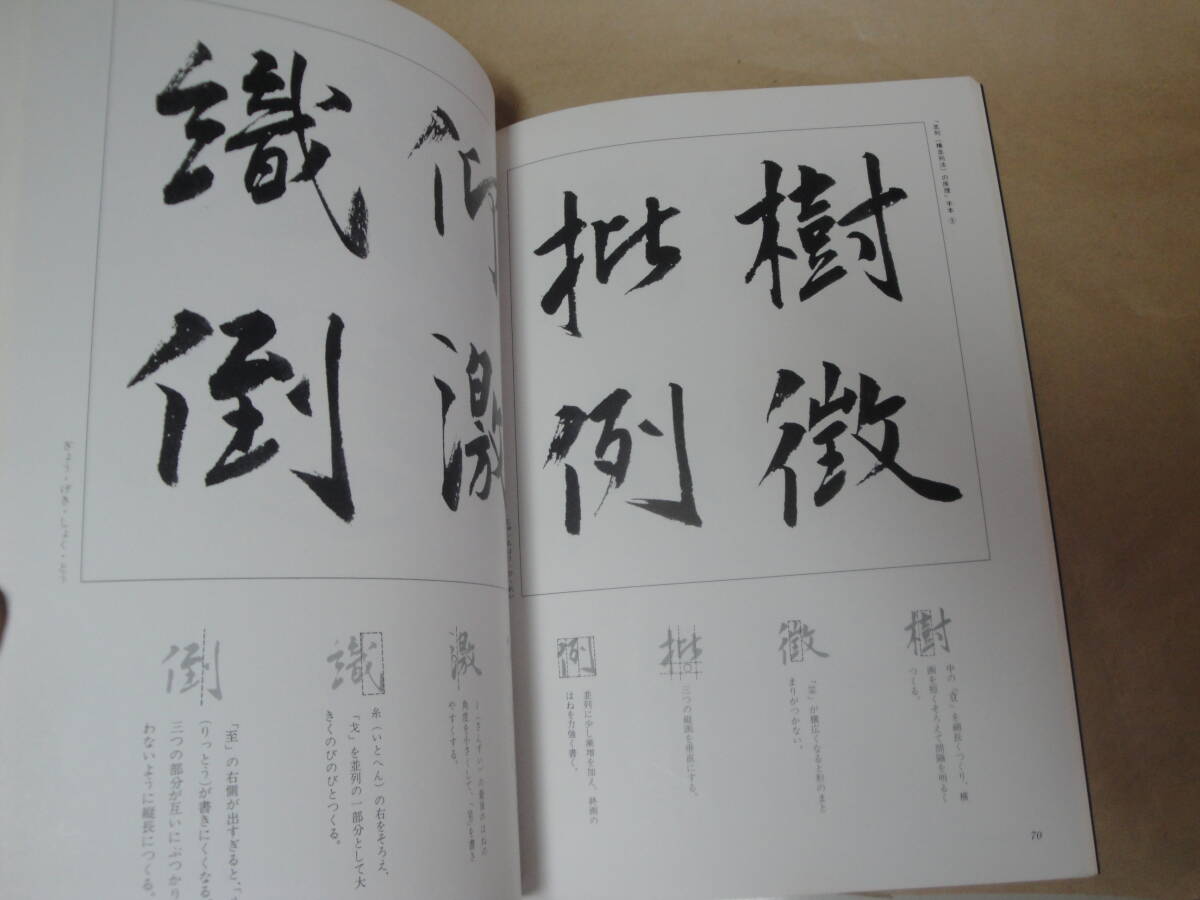 樹
徴
批
例
樹
を細長くつくり、横
画を短くそろえて間隔を明るく
つくる。
徴
が横広くなると形のまと
まりがつかない。
批
三つの縦画を垂直にする。
例
並列に少し漸増を加え、終画の
はねを力強く書く。
70
激
織
倒
ぎょう・げき・しょく・とう
激
(さんずい)の最後のはねの
角度を小さくして、を書き
やすくする。
織
糸(いとへん)の右をそろえ、
「戈」を並列の一部分として大
きくのびのびとつくる。
倒
「至」の右側が出すぎると、「
(りっとう)が書きにくくなる
三つの部分が互いにぶつかり
わないように縦長につくる。